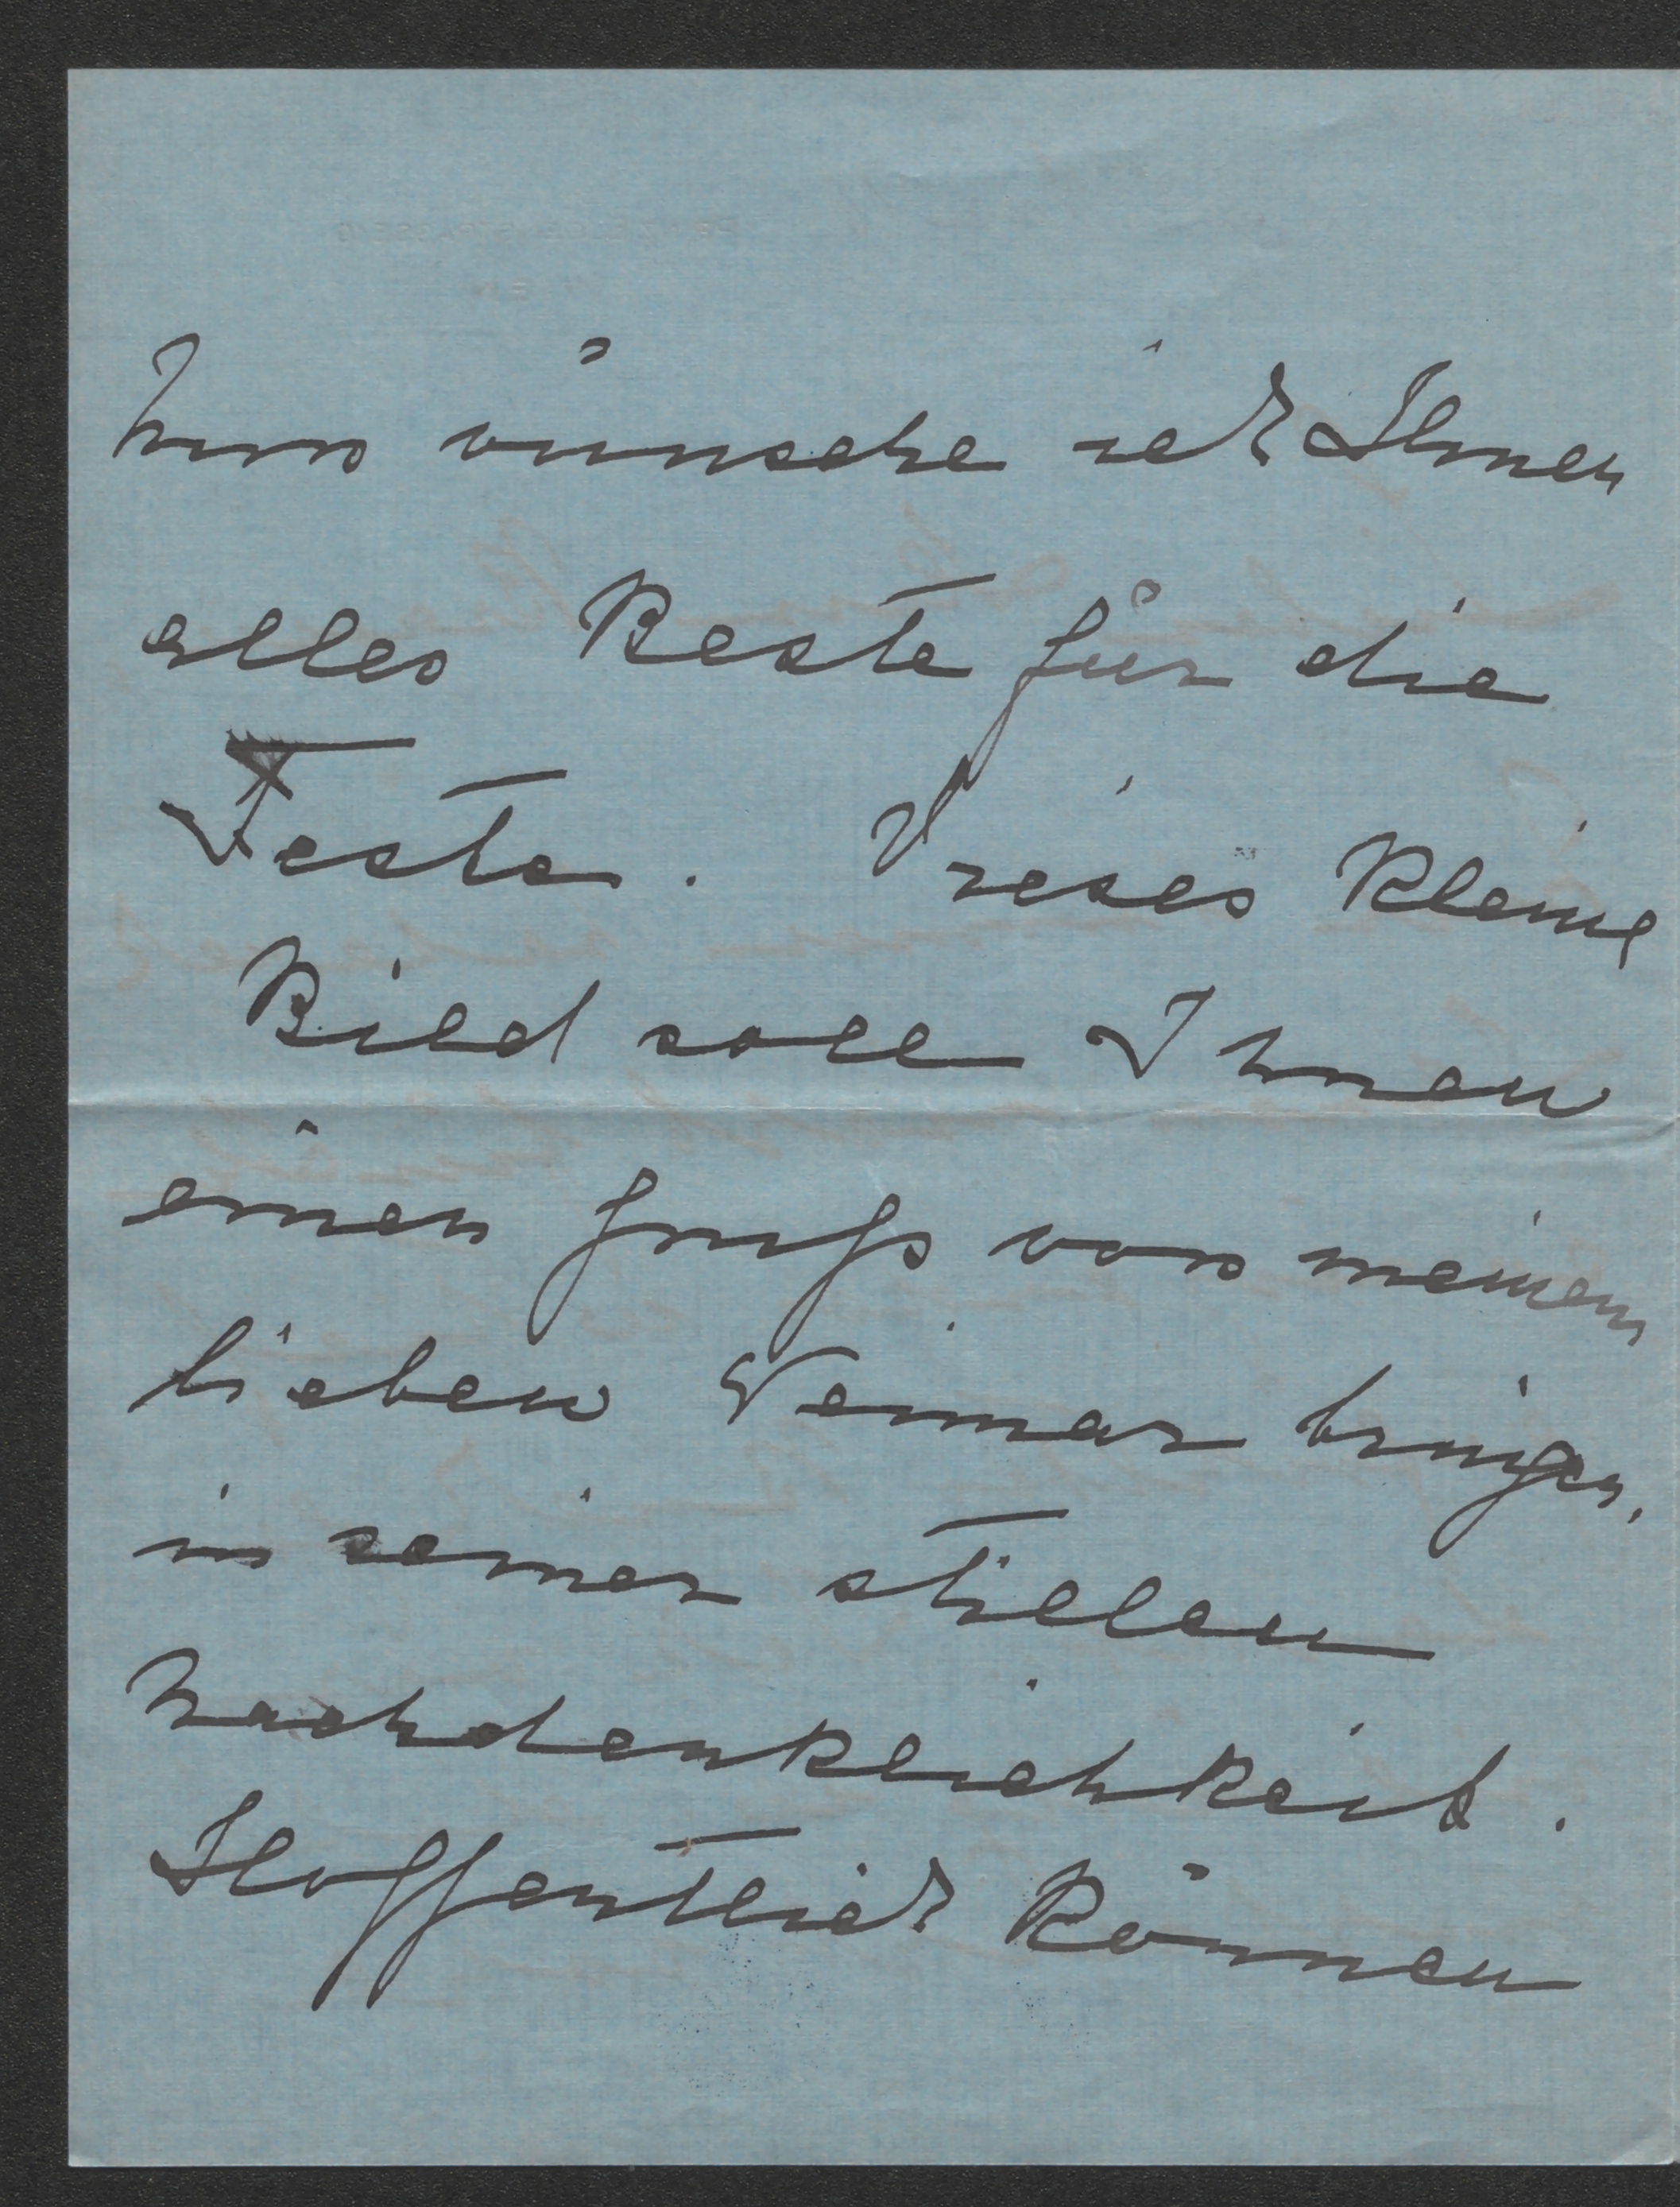 Nun wünsche ich Ihnen
alles Beste für die
Feste. Dieses kleine
Bild soll Ihnen
einen Gruß von meinem
lieben Weimar bringen,
in seiner stillen
Nachdenklichkeit.
Hoffentlich können